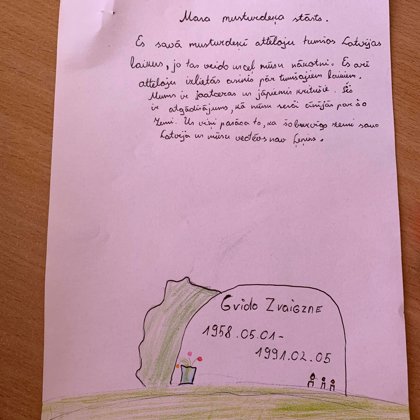 Mana musturdeķa stāsts.
Es savā musturdeķī attēloju tumšos Latvijas
laikus, jo tas veido un ceļ mūsu nākotni. Es arī
attēloju izlietās asinis pār tumšajiem laikiem.
Mums ir jāatceras un jāpiemin kritušie. Šis
ir atgādinājums, kā mūsu senči cīnījās par šo
zemi. Un viņi panāca to, ka šobrīd zemi sauc
Latvija un mūsu vadītājs nav Ļeņins.
Gvido Zvaigzne
1958.05.01-
1991.02.05